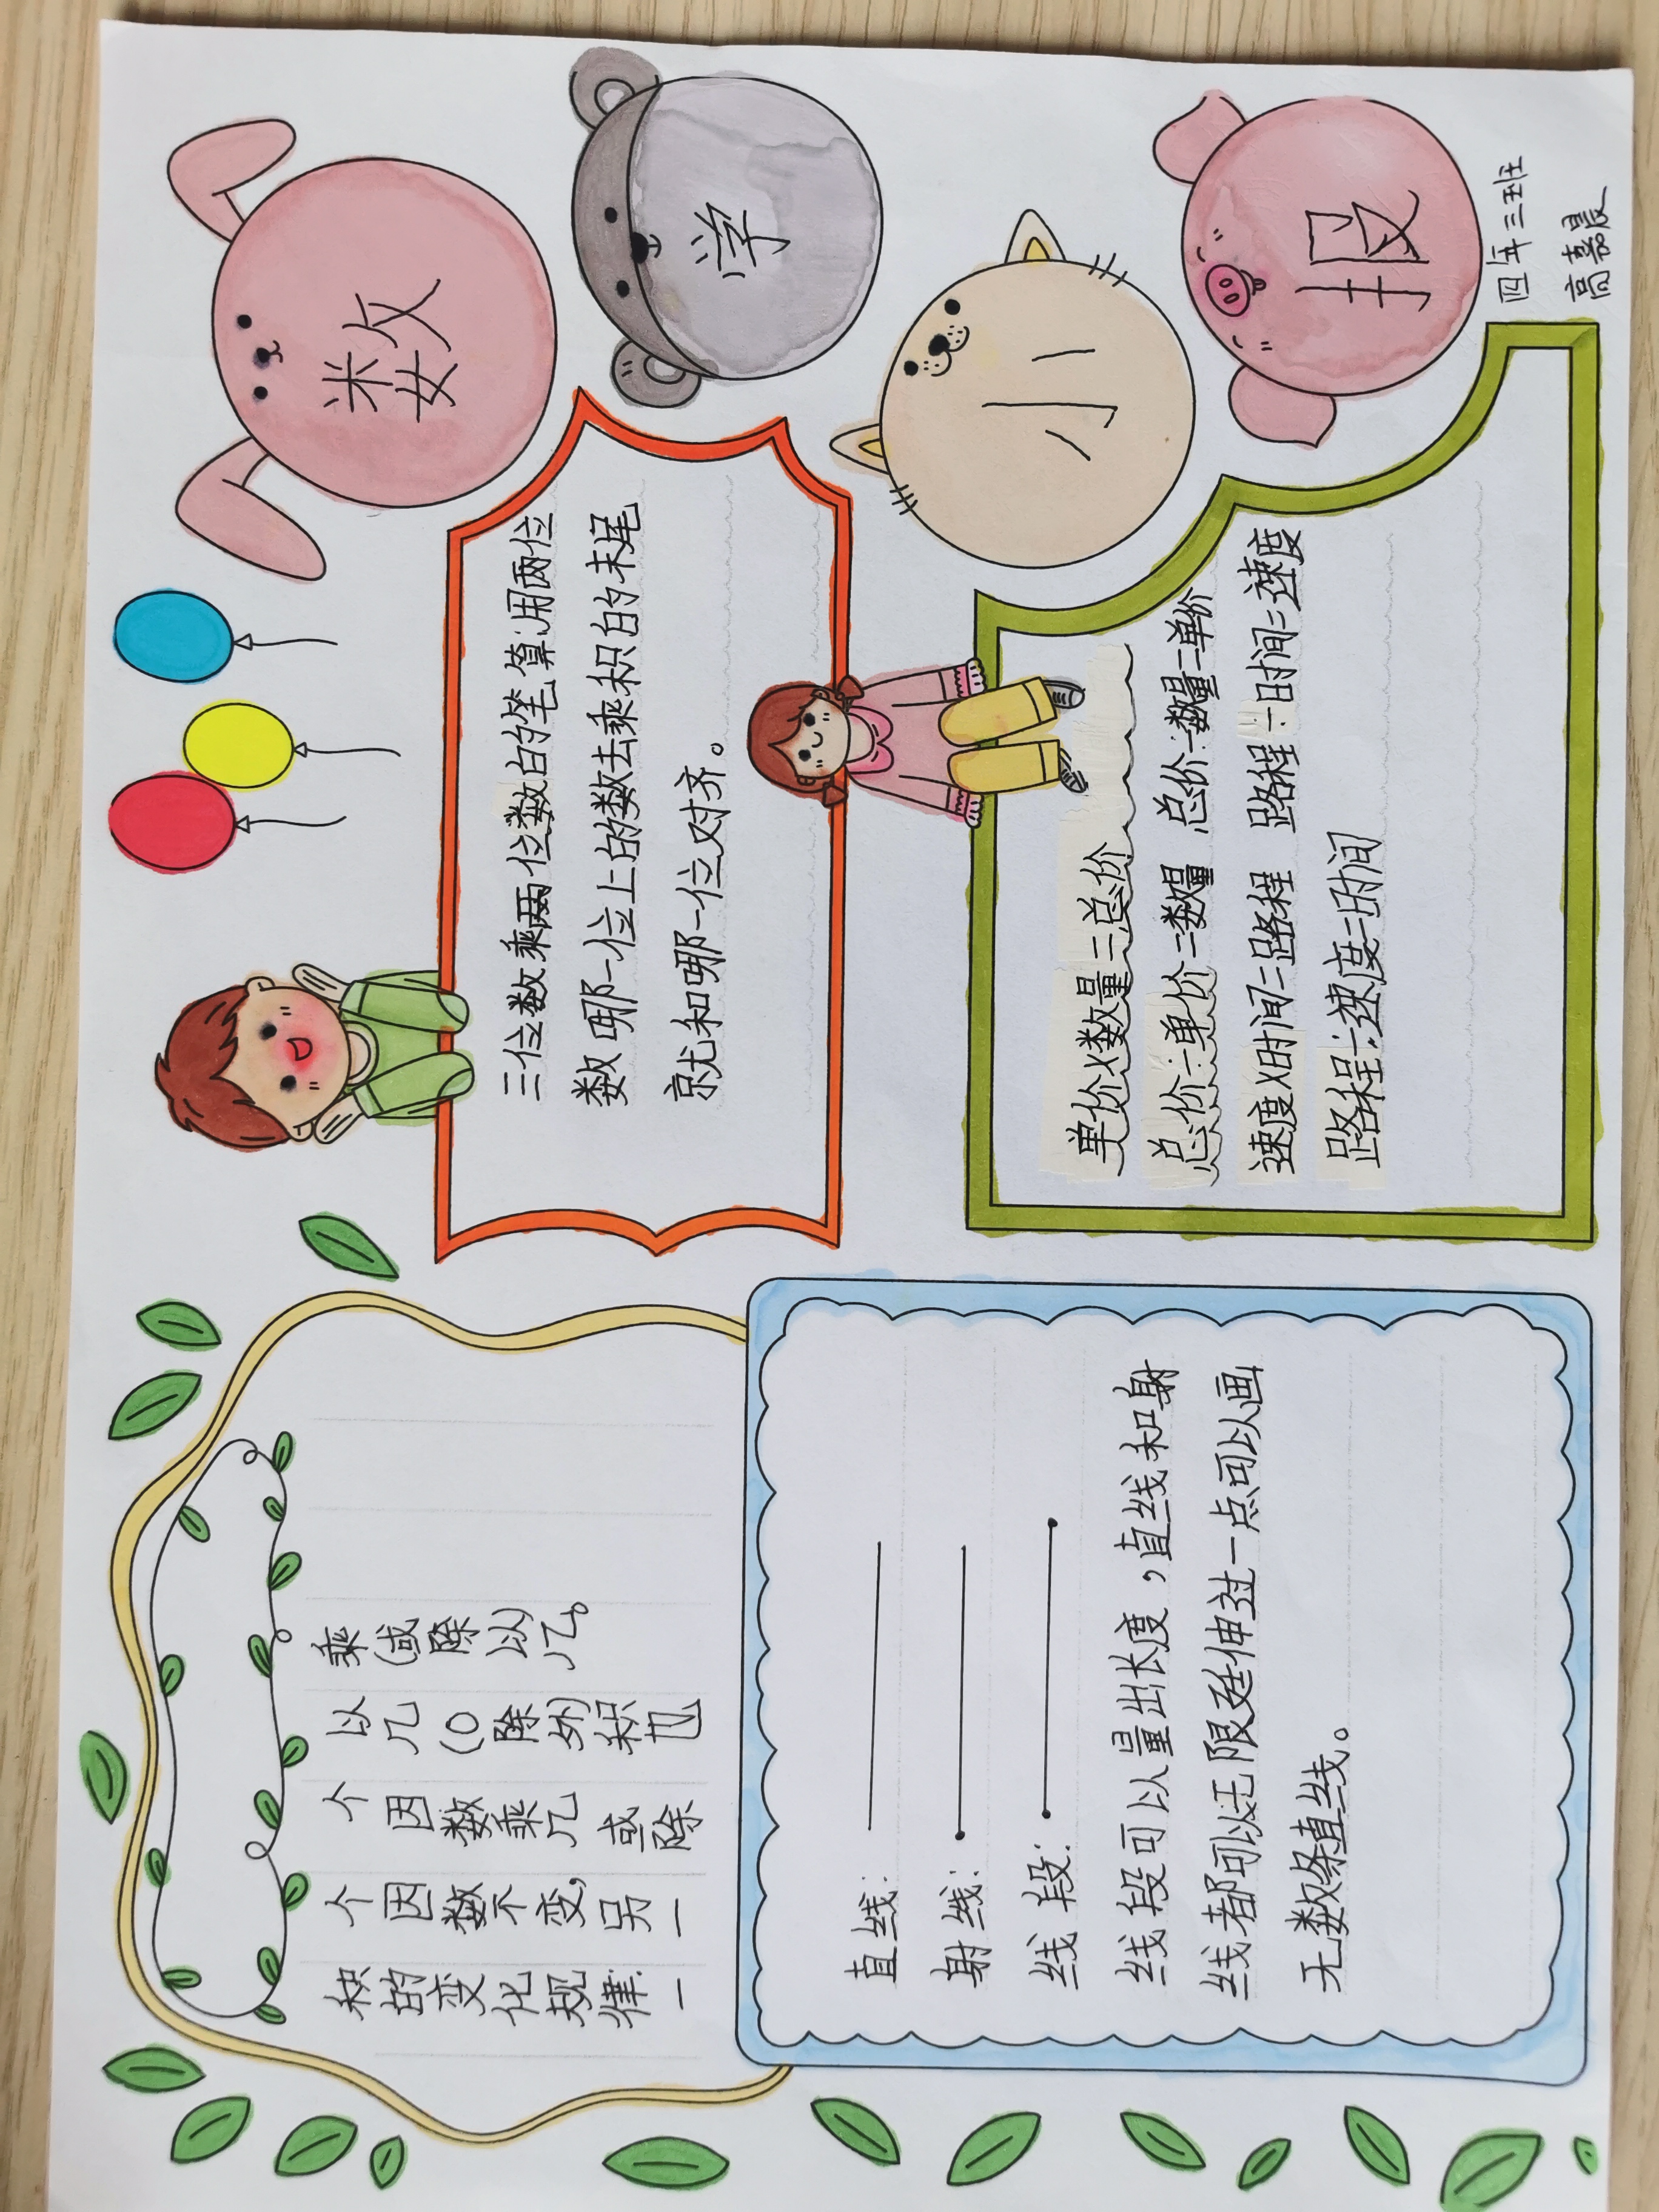 数
学
小
报
四年三班
高嘉晨
积的变化规律:一
个因数不变,另一
个因数乘几或除
以几(0除外积也
乘(或除以几。
三位数乘两位数的笔算:用两位
数哪一位上的数去乘积的末尾
就和哪一位对齐。
直线:
射线:
线段:
线段可以量出长度,直线和射
线都可以无限延伸过一点可以画
无数条直线。
单价×数量=总价
总价÷单价=数量 总价÷数量=单价
速度×时间=路程 路程÷时间=速度
路程÷速度=时间